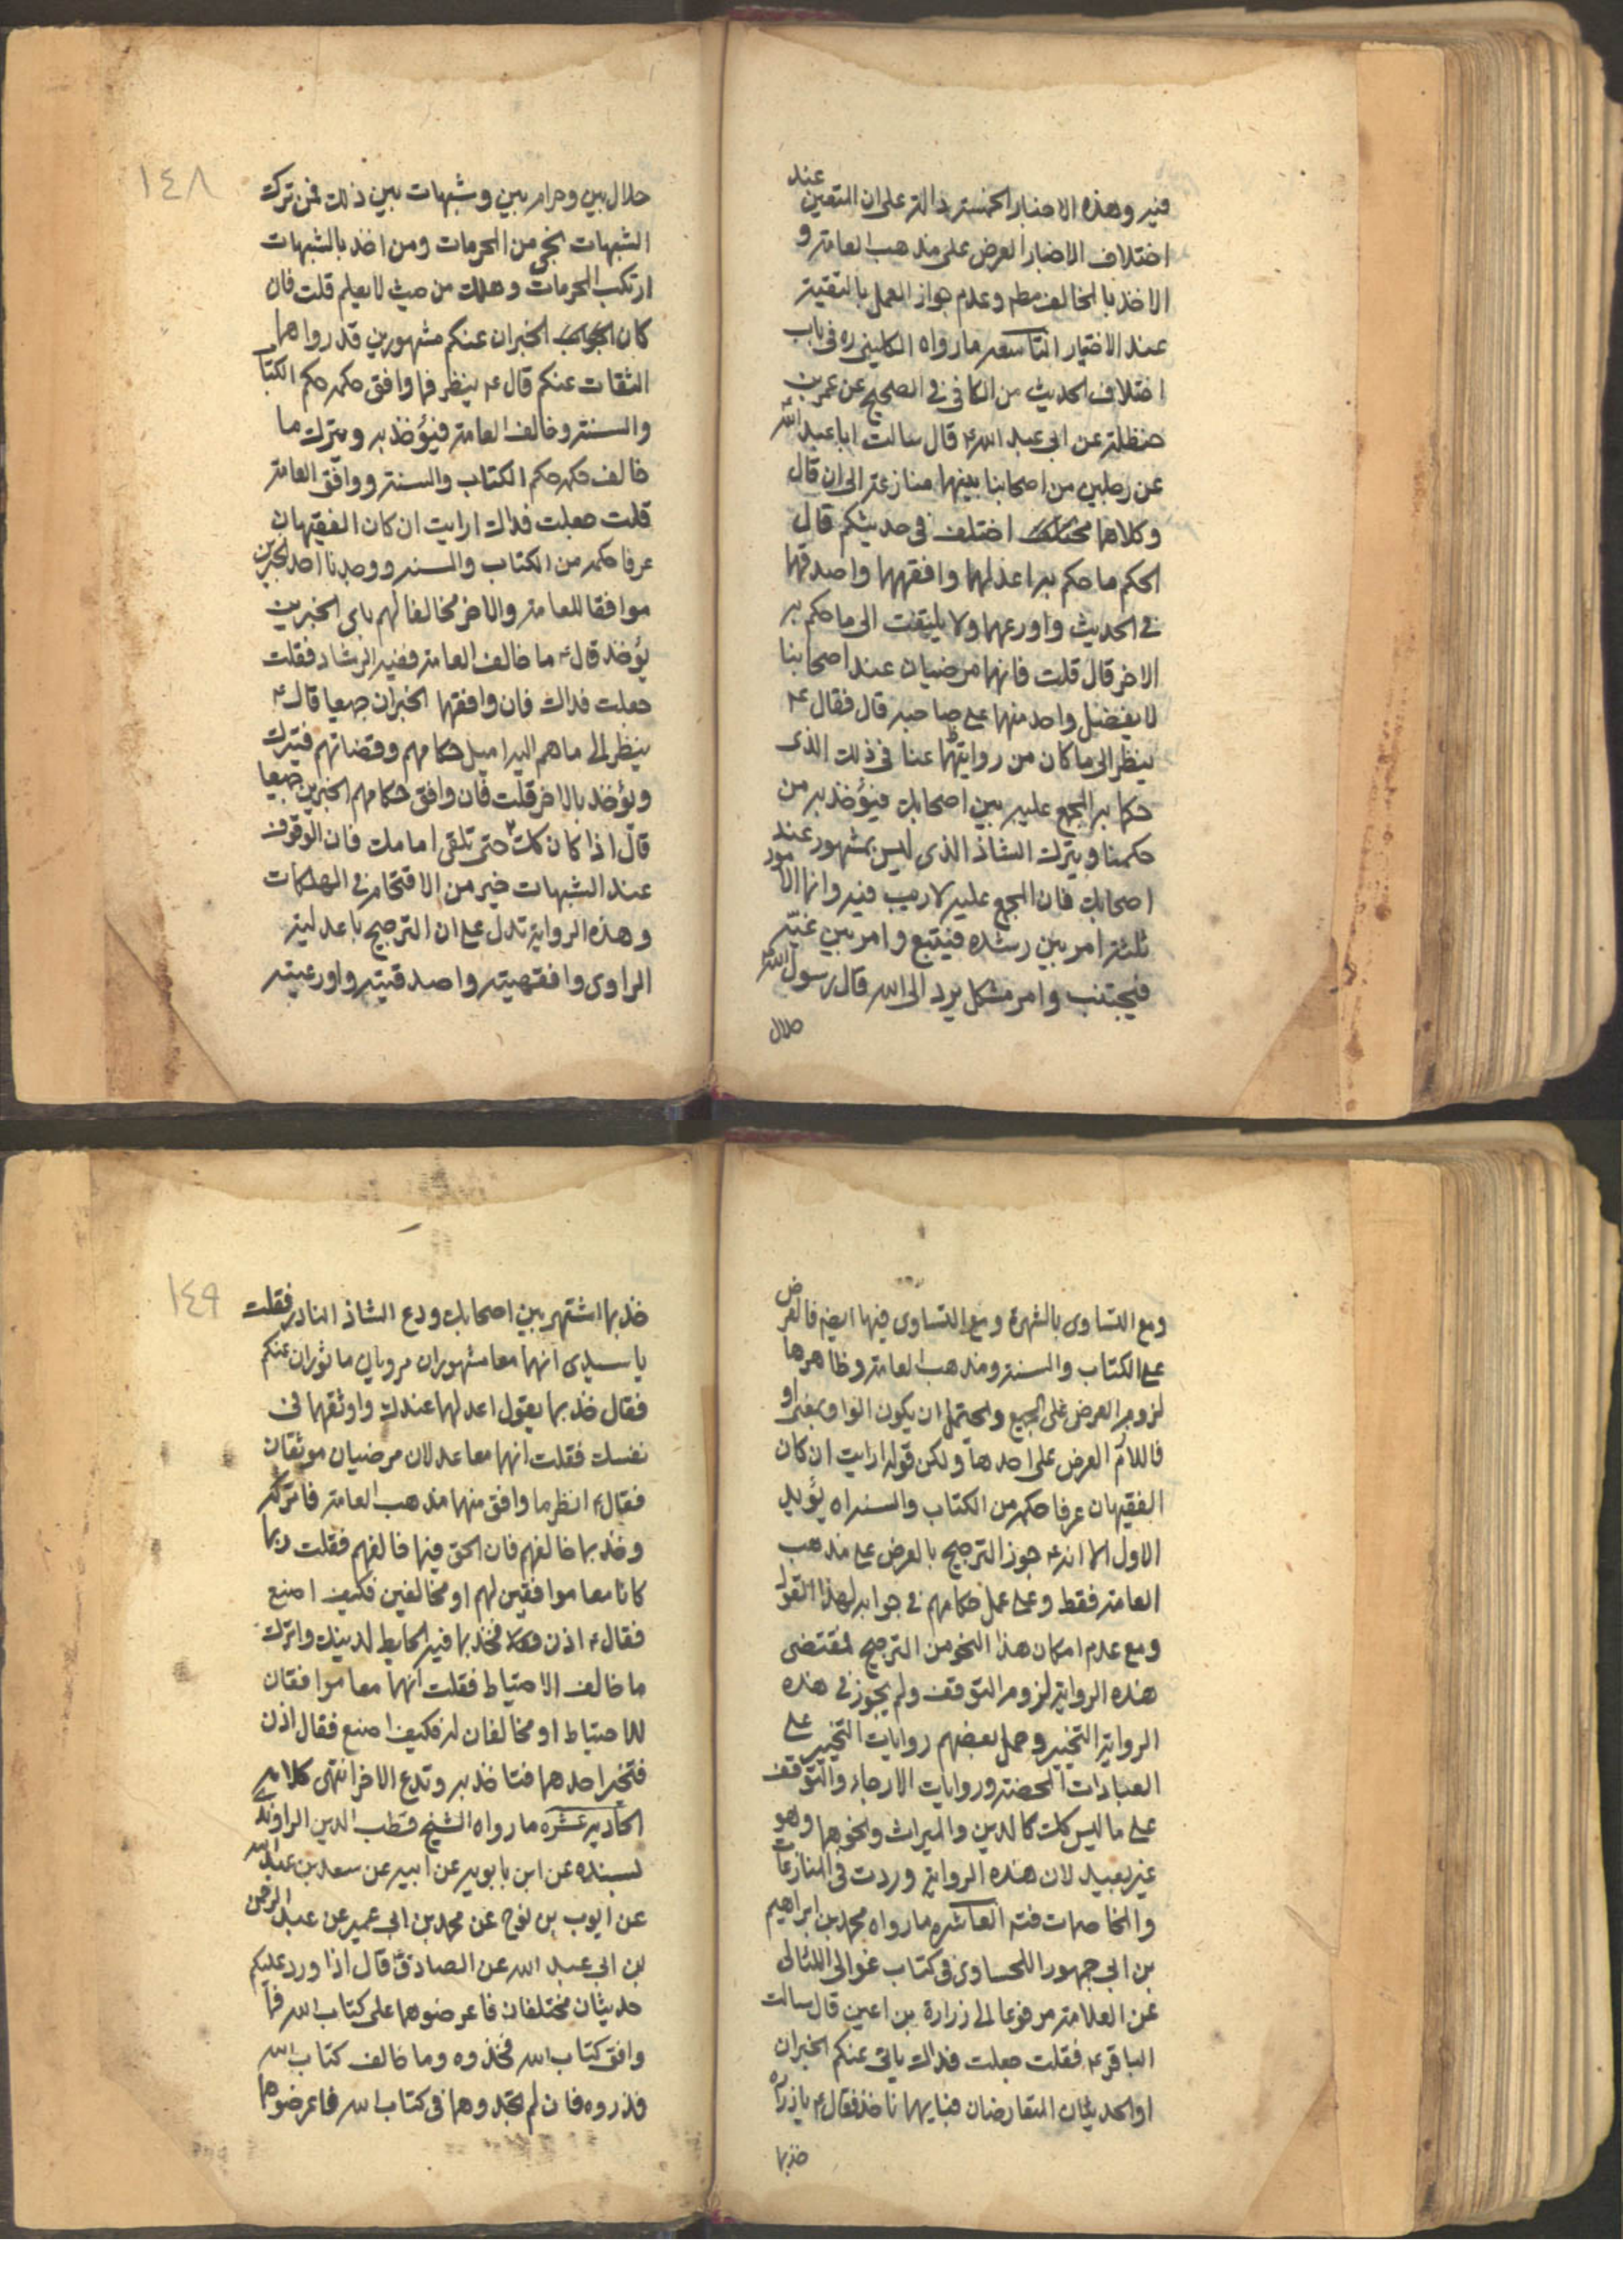 فيه وهذه الاخبار الخمسة دالة على ان المتعين عند
اختلاف الاخبار العرض على مذهب العامة و
الاخذ بالمخالف مطم وعدم جواز العمل بالتقية
عند الاختيار التاسعه ما رواه الكليني ره في باب
اختلاف الحديث من الكافي في الصحيح عن عمر بن
حنظلة عن ابي عبد الله ع قال سالت ابا عبد الله ع
عن رجلين من اصحابنا بينهما منازعة الى ان قال
وكلاهما اختلف في حديثكم قال
الحكم ما حكم به اعدلهما وافقههما واصدقهما
في الحديث واورعهما ولا يلتفت الى ما حكم به
الاخر قال قلت فانهما مرضيان عند اصحابنا
لا يفضل واحد منهما على صاحبه قال فقال ع
ينظر الى ما كان من روايتهما عنا في ذلك الذي
حكما به المجمع عليه بين اصحابك فيؤخذ به من
حكمنا ويترك الشاذ الذي ليس بمشهور عند
اصحابك فان المجمع عليه لا ريب فيه وانما الامور
ثلثة امر بين رشده فيتبع وامر بين غيّه
فيجتنب وامر مشكل يرد الى الله قال رسول الله
حلال
١٤٨
حلال بين وحرام بين وشبهات بين ذلك فمن ترك
الشبهات نجى من المحرمات ومن اخذ بالشبهات
ارتكب المحرمات وهلك من حيث لا يعلم قلت فان
كان الخبران عنكم مشهورين قد رواهما
الثقات عنكم قال ع ينظر فما وافق حكمه حكم الكتاب
والسنة وخالف العامة فيؤخذ به ويترك ما
خالف حكمه حكم الكتاب والسنة ووافق العامة
قلت جعلت فداك ارايت ان كان الفقيهان
عرفا حكمه من الكتاب والسنة ووجدنا احد الخبرين
موافقا للعامة والاخر مخالفا لهم باي الخبرين
يؤخذ قال ع ما خالف العامة ففيه الرشاد فقلت
جعلت فداك فان وافقهما الخبران جميعا قال ع
ينظر الى ما هم اليه اميل حكامهم وقضاتهم فيترك
ويؤخذ بالاخر قلت فان وافق حكامهم الخبرين جميعا
قال اذا كان كك حتى تلقى امامك فان الوقوف
عند الشبهات خير من الاقتحام في الهلكات
وهذه الرواية تدل على ان الترجيح باعدلية
الراوي وافقهيته واصدقيته واورعيته
ومع التساوي بالشهرة ومع التساوي فيها ايضه فالعرض
على الكتاب والسنة ومذهب العامة وظاهرها
لزوم العرض على الجميع واحتمل ان يكون الواو بمعنى او
فاللازم العرض على احدها ولكن قوله ارايت ان كان
الفقيهان عرفا حكمه من الكتاب والسنة اه يؤيد
الاول الا انه ع جوز الترجيح بالعرض على مذهب
العامة فقط وعلى عمل حكامهم في جوابه لهذا القول
ومع عدم امكان هذا النحو من الترجيح فمقتضى
هذه الرواية لزوم التوقف ولم يجوز في هذه
الرواية التخيير وحمل بعضهم روايات التخيير على
العبادات المحضة وروايات الارجاء والتوقف
على ما ليس كك كالدين والميراث ونحوهما وهو
غير بعيد لان هذه الرواية وردت في المنازعات
والمخاصمات فتم العاشره ما رواه محمد بن ابراهيم
بن ابي جمهور اللحساوي في كتاب غوالي اللئالي
عن العلامة مرفوعا الى زرارة بن اعين قال سالت
الباقر ع فقلت جعلت فداك ياتي عنكم الخبران
او الحديثان المتعارضان فبايهما ناخذ فقال ع يا زراره
خذ بما
١٤٩
خذ بما اشتهر بين اصحابك ودع الشاذ النادر فقلت
يا سيدي انهما معا مشهوران مرويان ماثوران عنكم
فقال خذ بما يقول اعدلهما عندك واوثقهما في
نفسك فقلت انهما معا عدلان مرضيان موثقان
فقال ع انظر ما وافق منهما مذهب العامة فاتركه
وخذ بما خالفهم فان الحق فيما خالفهم فقلت ربما
كانا معا موافقين لهم او مخالفين فكيف اصنع
فقال ع اذن فخذ بما فيه الحايط لدينك واترك
ما خالف الاحتياط فقلت انهما معا موافقان
للاحتياط او مخالفان له فكيف اصنع فقال اذن
فتخير احدهما فتاخذ به وتدع الاخر انتهى كلامه
الحاديه عشره ما رواه الشيخ قطب الدين الراوندي
بسنده عن ابن بابويه عن ابيه عن سعد بن عبد الله
عن ايوب بن نوح عن محمد بن ابي عمير عن عبد الرحمن
بن ابي عبد الله عن الصادق ع قال اذا ورد عليكم
حديثان مختلفان فاعرضوهما على كتاب الله فما
وافق كتاب الله فخذوه وما خالف كتاب الله
فذروه فان لم تجدوهما في كتاب الله فاعرضوهما